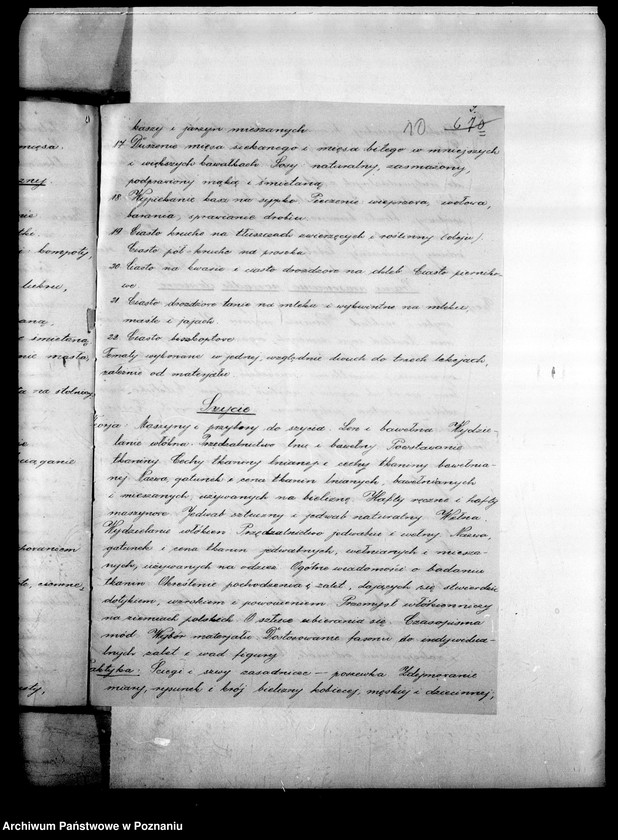 10 670
kaszy i jarzyn mieszanych
17 Duszenie mięsa siekanego i mięsa białego w mniejszych
i większych kawałkach Sosy naturalny, zasmażony,
podprawiony mąką i śmietaną
18 Wypiekanie na sypko Pieczenie wieprzowa, wołowa,
barania, sprawianie drobiu
19 Ciasto kruche na tłuszczach zwierzęcych i roślinny (oleju).
Ciasto pół-kruche na proszku
20 Ciasto na kwasie i ciasto drożdżowe na chleb Ciasto pierniko-
we.
21 Ciasto drożdżowe tanie na mleku i wykwintne na mleku,
maśle i jajach.
22 Ciasto biszkoptowe
Tematy wykonane w jednej, względnie dwuch do trzech lekcjach,
zależnie od materjału
Szycie
Maszyny i przybory do szycia Len i bawełna Wydzie-
lanie włókna Przędzalnictwo lnu i bawełny Powstawanie
tkaniny Cechy tkaniny lnianej i cechy tkaniny bawełnia-
nej Nazwa, gatunek i cena tkanin lnianych, bawełnianych
i mieszanych, używanych na bieliznę Hafty ręczne i hafty
maszynowe Jedwab sztuczny i jedwab naturalny Wełna
Wydzielanie włókien Przędzalnictwo jedwabiu i wełny Nazwa,
gatunek i cena tkanin jedwabnych, wełnianych i miesza-
nych, używanych na odzież Ogólne wiadomości o badaniu
tkanin Określenie pochodzenia i zalet, dających się stwierdzić
dotykiem, wzrokiem i powonieniem Przemysł włókienniczy
na ziemiach polskich O sztuce ubierania się Czasopisma
mód Wybór materjału Dostosowanie fasonu do indywidua-
lnych zalet i wad figury
Praktyka: Ściegi i szwy zasadnicze — poszewka Zdejmowanie
miary, rysunek i krój bielizny kobiecej, męskiej i dziecinnej,
mięsa.
kompoty,
śmietaną
na stolnicy
Archiwum Państwowe w Poznaniu